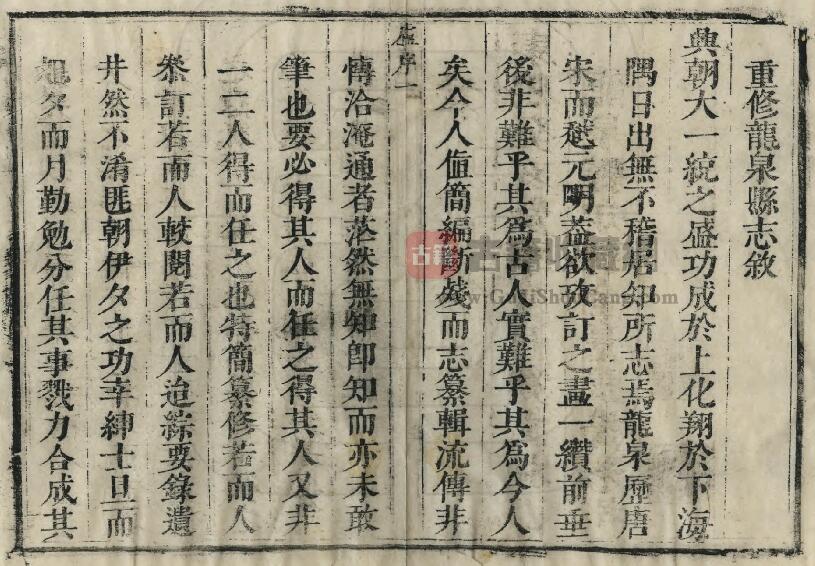 重修龍泉縣志敘
興朝大一統之盛功成於上化翔於下海
隅日出無不稽居知所志焉龍泉歷唐
宋而越元明蓋欲攷訂之畫一纘前垂
後非難乎其為古人實難乎其為今人
矣今人值簡編斷殘而志纂輯流傳非
盧序一
博洽淹通者茫然無知卽知而亦未敢
筆也要必得其人而任之得其人又非
一二人得而任之也特簡纂修若而人
叅訂若而人較閱若而人迨綜要錄遺
井然不淆匪朝伊夕之功幸紳士旦而
夕而月勤勉分任其事戮力合成其
古籍
www.GuJiShuCang.com